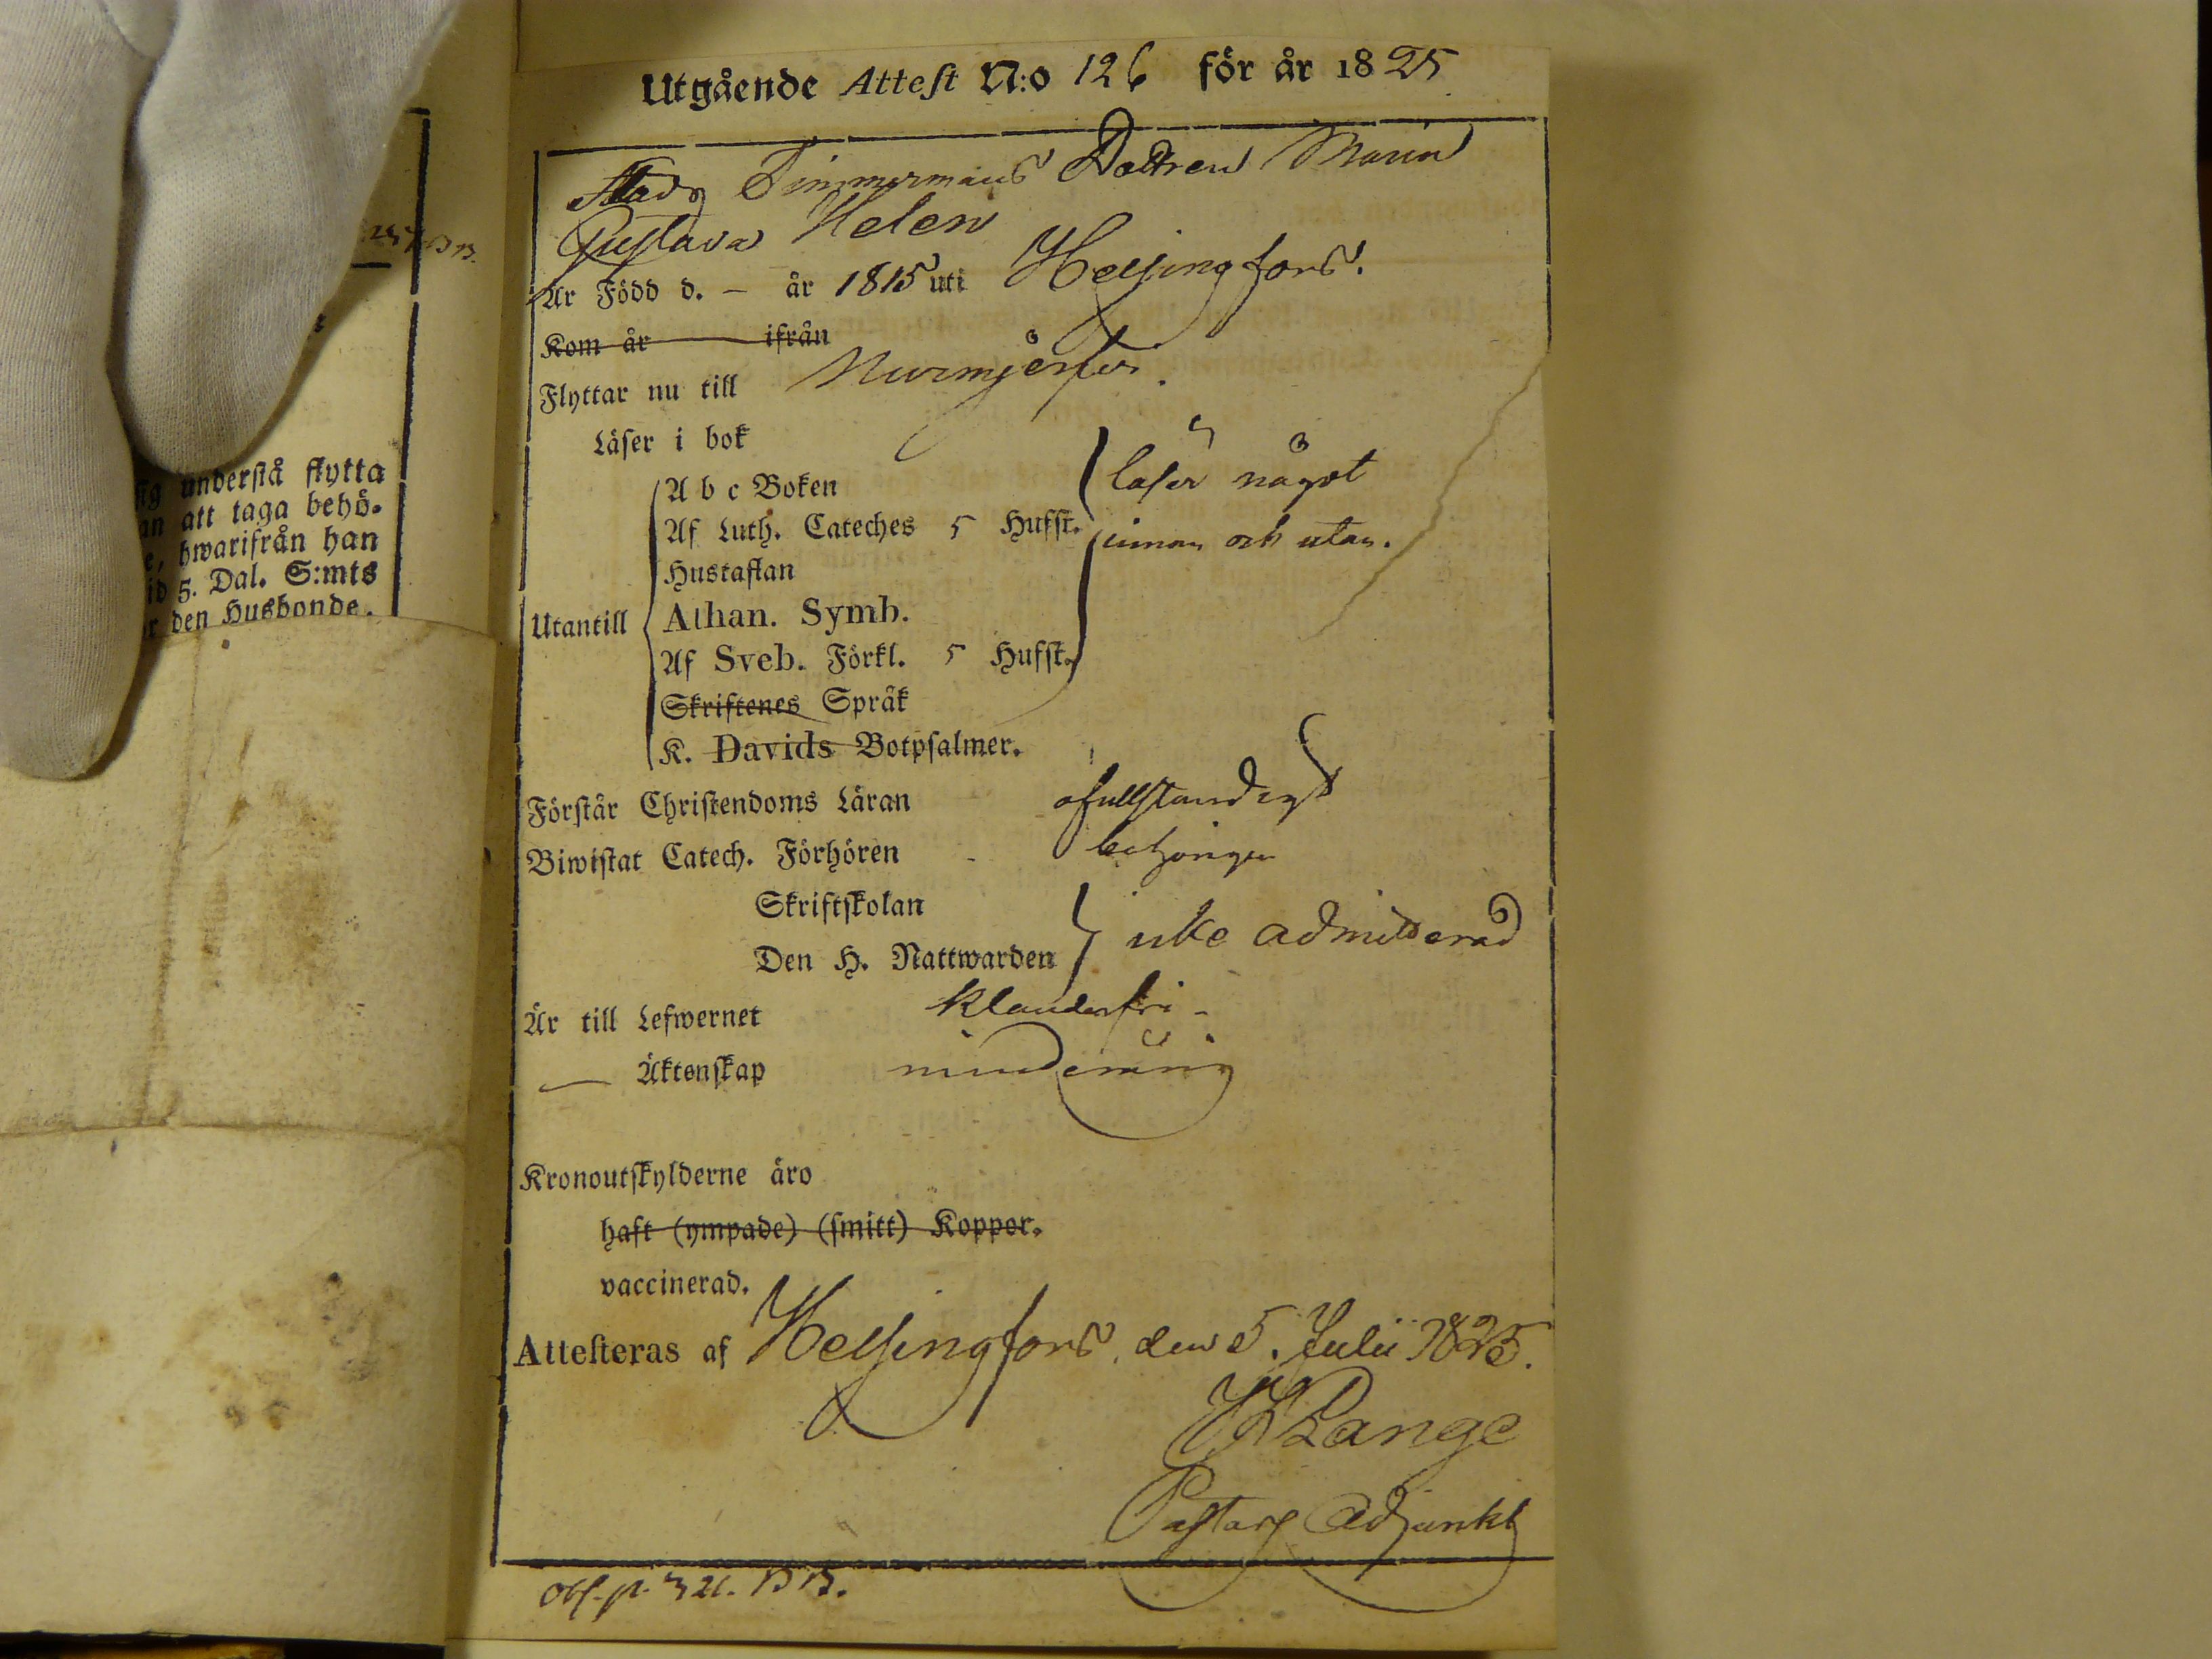 Utgående Attest N:o 126 för år 1825
Stads Timmermans Dottren Maria
Gustava Helen
Är Född d. – år 1815 uti Helsingfors.
Kom år ifrån
Flyttar nu till Nurmijerfvi.
Läser i bok
A b c Boken
läser något
Af Luth. Cateches 5 Hufst.
innan och utan.
Hustaflan
Utantill
Athan. Symb.
Af Sveb. Förkl. 5 Hufst.
Skriftenes Språk
K. Davids Botpsalmer.
Förstår Christendoms Läran ofullständigt
Biwistat Catech. Förhören behörigen
Skriftskolan
Den H. Nattwarden icke admitterad
Är till Lefwernet klanderfri -
— Äktenskap minderårig
Kronoutskylderne äro
haft (ympade) (smitt) Koppor.
vaccinerad.
Attesteras af Helsingfors den 5. Julii 1825.
Lange
Pastors Adjunkt
p. 321.
sig understå flytta
an att taga behö-
e, hwarifrån han
id 5. Dal. S:mts
r den Husbonde.